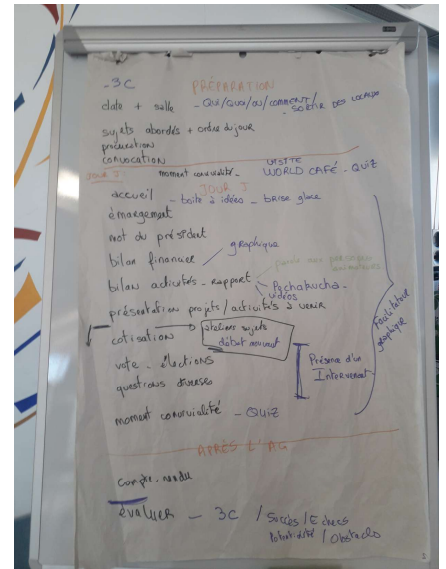 - 3C PRÉPARATION
date + salle - QUI/QUOI/OU/COMMENT/
- SORTIR DES LOCAUX
sujets abordés + ordre du jour
procuration
convocation
VISITE
JOUR J moment convivialité - WORLD CAFÉ - QUIZ
JOUR J
accueil - boite à idées - brise glace
émargement
mot du président
bilan financier / graphique
bilan activités - rapport
parole aux personnes
- Pechakucha -
vidéos
présentation projets / activités à venir
cotisation
ateliers sujets
débat mouvant
vote - élections
questions diverses
Présence d'un
Intervenant
Facilitateur
graphique
moment convivialité - QUIZ
APRÈS L'AG
compte-rendu
évaluer - 3C / Succès / Echecs
Potentialité / Obstacles